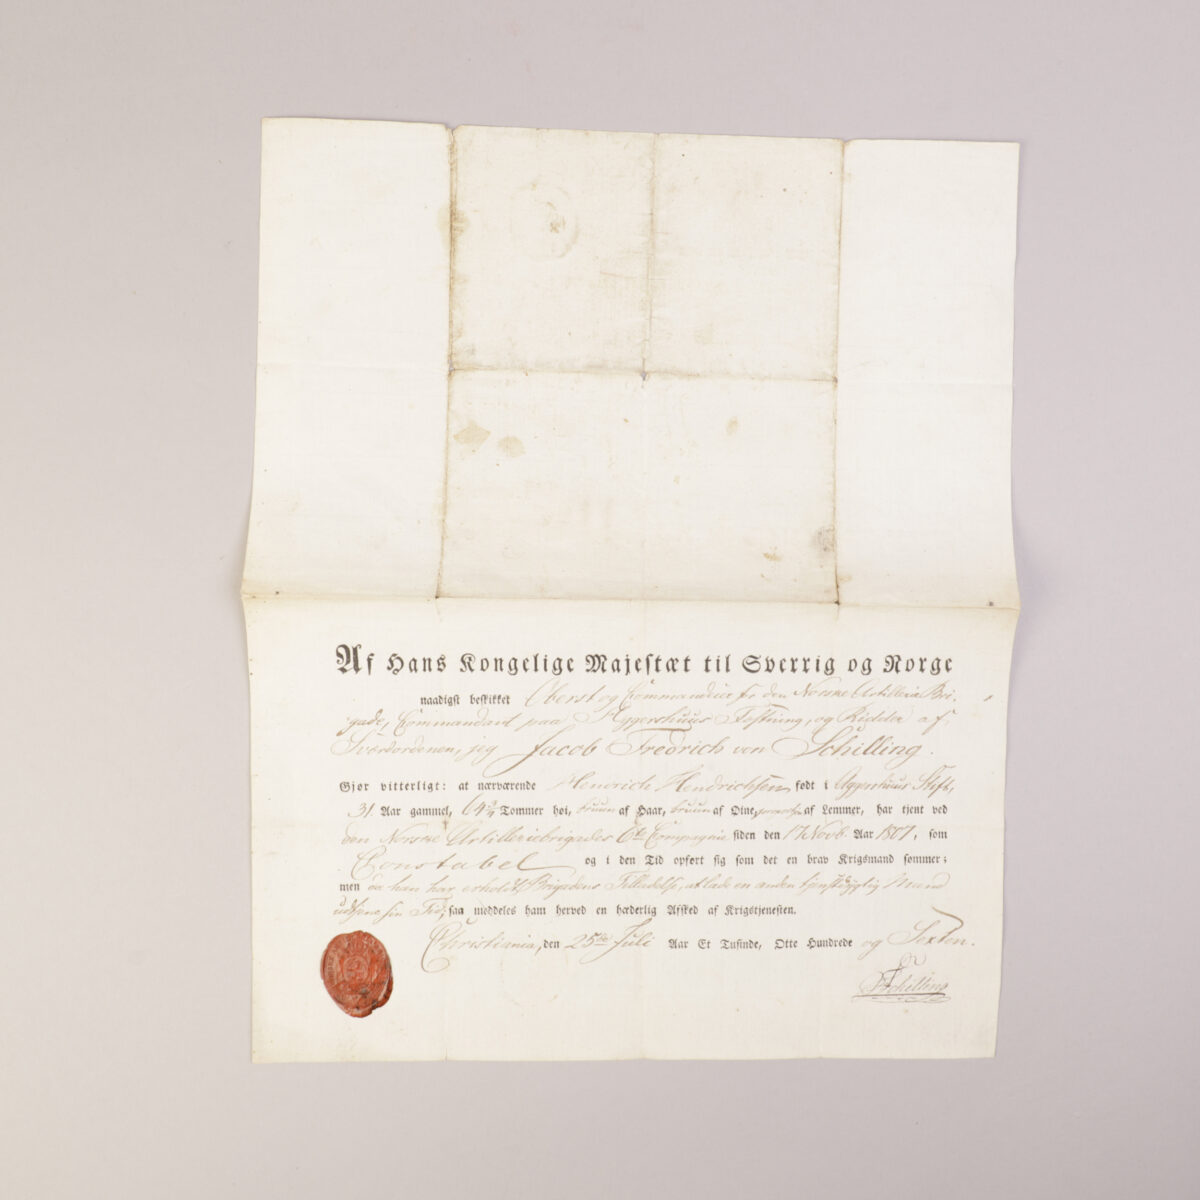 Af Hans Kongelige Majestæt til Sverrig og Norge
naadigst beskikket Oberst og Commandeur for den Norske Artillerie Bri-
gade, Commandant paa Aggershuus Fæstning, og Ridder af
Sværdordenen, jeg Jacob Fredrich von Schilling.
Gjør vitterligt: at nærværende Hendrich Hendrichsen født i Aggershuus Stift,
31 Aar gammel, 64 3/4 Tommer høi, bruun af Haar, bruun af Øine, af Lemmer, har tjent ved
den Norske Artilleriebrigades 6te Compagnie siden den 17 Novb. Aar 1807, som
Constabel og i den Tid opført sig som det en brav Krigsmand sømmer;
men da han har erholdt Brigadens Tilladelse, at lade en anden tjenstdygtig Mand
udtjene sin Tid, saa meddeles ham herved en hæderlig Afsked af Krigstjenesten.
Christiania, den 25de Juli Aar Et Tusinde, Otte Hundrede og Sexten.
Schilling